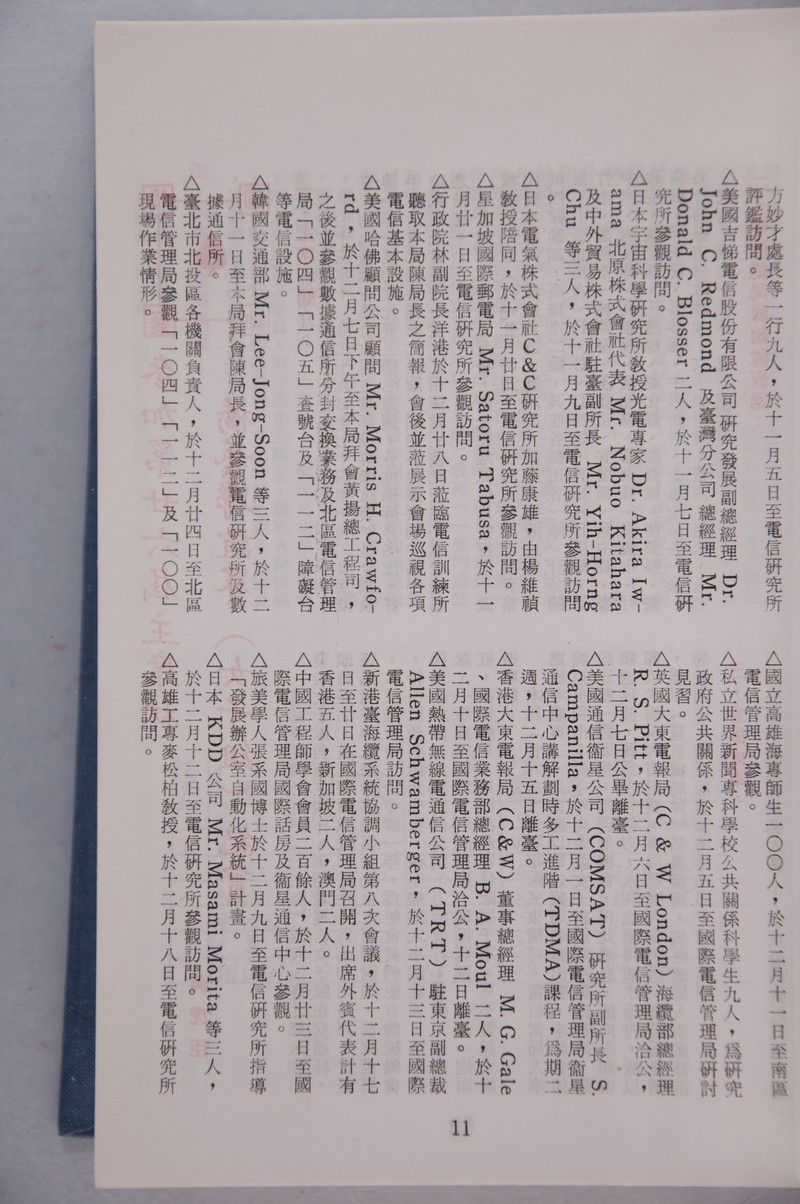 方妙才處長等一行九人，於十一月五日至電信研究所
評鑑訪問。
△美國吉悌電信股份有限公司研究發展副總經理 Dr.
John C. Redmond 及臺灣分公司總經理 Mr.
Donald C. Blosser 二人，於十一月七日至電信研
究所參觀訪問。
△日本宇宙科學研究所教授光電專家 Dr. Akira Iw-
ama 北原株式會社代表 Mr. Nobuo Kitahara
及中外貿易株式會社駐臺副所長 Mr. Yih-Horng
Chu 等三人，於十一月九日至電信研究所參觀訪問
。
△日本電氣株式會社C&C研究所加藤康雄，由楊維禎
教授陪同，於十一月廿日至電信研究所參觀訪問。
△星加坡國際郵電局 Mr. Satoru Tabusa，於十一
月廿一日至電信研究所參觀訪問。
△行政院林副院長洋港於十二月廿八日蒞臨電信訓練所
聽取本局陳局長之簡報，會後並蒞展示會場巡視各項
電信基本設施。
△美國哈佛顧問公司顧問 Mr. Morris H. Crawfo-
rd，於十二月七日下午至本局拜會黃揚總工程司，
之後並參觀數據通信所分封交換業務及北區電信管理
局「一〇四」「一〇五」查號台及「一一二」障礙台
等電信設施。
△韓國交通部 Mr. Lee-Jong-Soon 等三人，於十二
月十一日至本局拜會陳局長，並參觀電信研究所及數
據通信所。
△臺北市北投區各機關負責人，於十二月廿四日至北區
電信管理局參觀「一〇四」「一一二」及「一〇〇」
現場作業情形。
△國立高雄海專師生一〇〇人，於十二月十一日至南區
電信管理局參觀。
△私立世界新聞專科學校公共關係科學生九人，爲研究
政府公共關係，於十二月五日至國際電信管理局研討
見習。
△英國大東電報局（C & W London）海纜部總經理
R. S. Pitt，於十二月六日至國際電信管理局洽公，
十二月七日公畢離臺。
△美國通信衞星公司（COMSAT）研究所副所長 S.
Campanilla，於十二月一日至國際電信管理局衞星
通信中心講解劃時多工進階（TDMA）課程，爲期二
週，十二月十五日離臺。
△香港大東電報局（C&W）董事總經理 M. G. Gale
、國際電信業務部總經理 B. A. Moul 二人，於十
二月十日至國際電信管理局洽公，十二日離臺。
△美國熱帶無線電通信公司（TRT）駐東京副總裁
Allen Schwamberger，於十二月十三日至國際
電信管理局訪問。
△新港臺海纜系統協調小組第八次會議，於十二月十七
日至廿日在國際電信管理局召開，出席外賓代表計有
香港五人，新加坡二人，澳門二人。
△中國工程師學會會員二百餘人，於十二月廿三日至國
際電信管理局國際話房及衞星通信中心參觀。
△旅美學人張系國博士於十二月九日至電信研究所指導
「發展辦公室自動化系統」計畫。
△日本 KDD 公司 Mr. Masami Morita 等三人，
於十二月十二日至電信研究所參觀訪問。
△高雄工專麥松柏教授，於十二月十八日至電信研究所
參觀訪問。
11